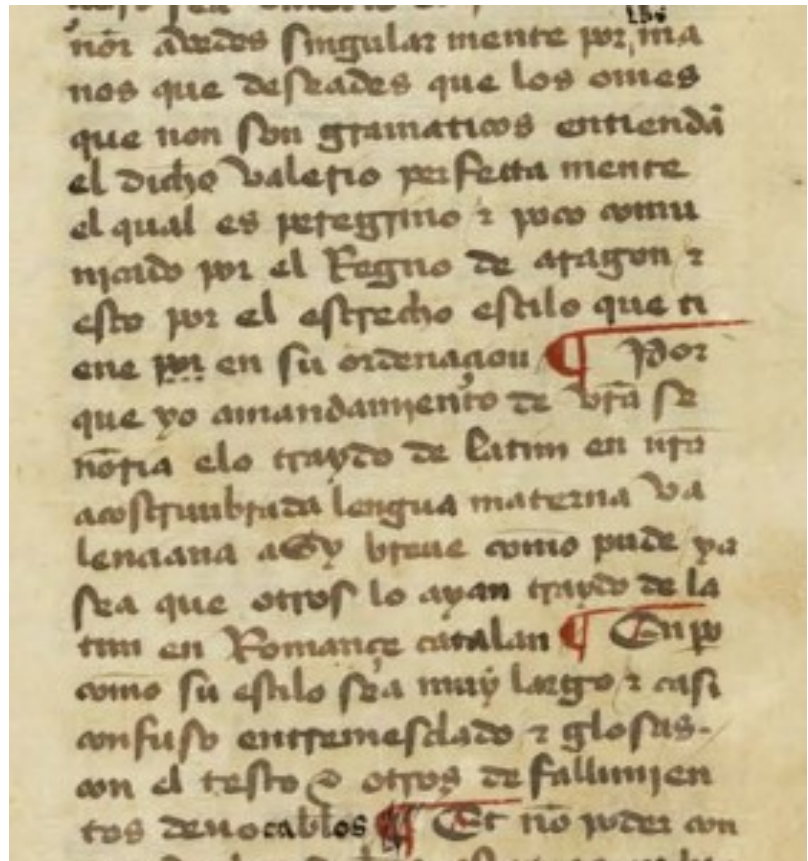 nõr avedes singular mente por ma
nos que deseades que los omes
que non son gramaticos entiendã
el dicho valerio perfecta mente
el qual es peregrino ⁊ poco comu
nicado por el Regno de aragon ⁊
esto por el estrecho estilo que ti
ene por en su ordenaçion ¶ Por
que yo a mandamiento de vr̃a se
ñoria elo traydo de latin en nr̃a
acostunbrada lengua materna va
lençiana asy breue como pude ya
sea que otros lo ayan traydo de la
tin en Romançe catalan ¶ En po
como su estilo sea muy largo ⁊ casi
confuso entremesclado ⁊ glosas
con el testo ⁊ otros de fallimien
tos de vocablos ¶ Et nõ poder con